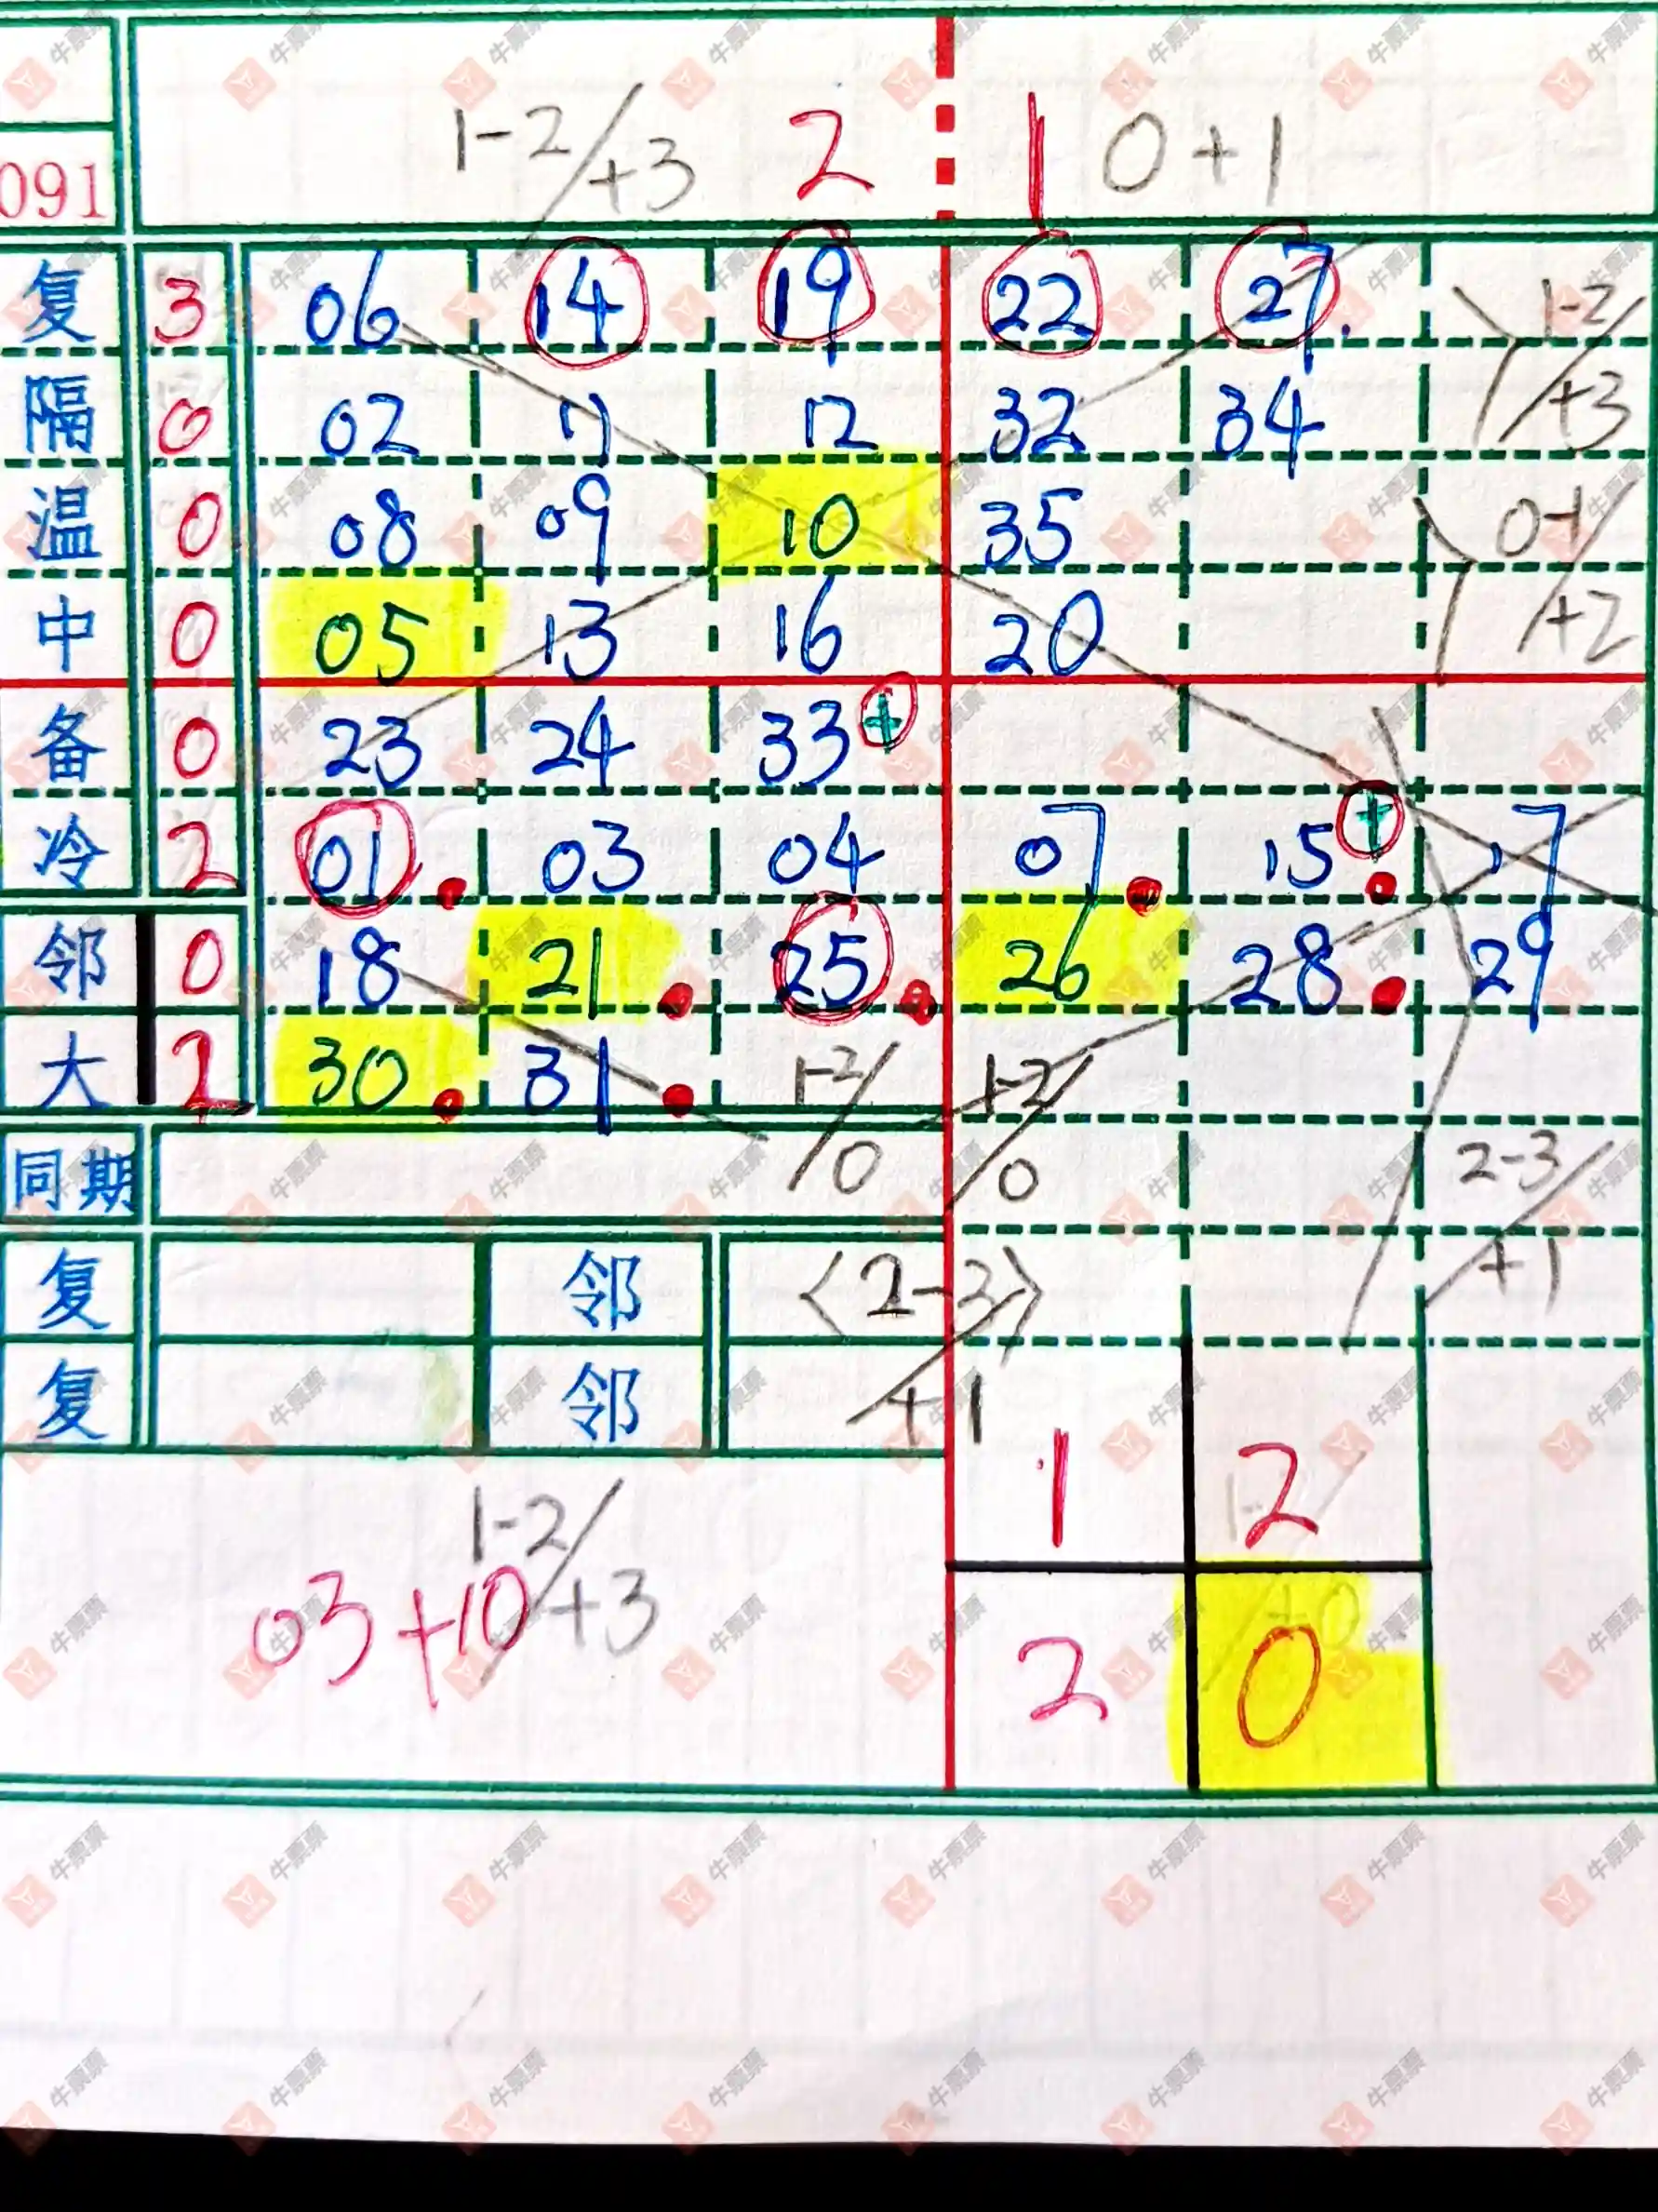 1-2/+3 2 1 0+1
091
复 3 06 14 19 22 27. 1-2/
隔 0 02 11 12 32 34 +3
温 0 08 09 10 35 0-1/
中 0 05 13 16 20 +2
备 0 23 24 33 +
冷 2 01 03 04 07 15 + 17
邻 0 18 21 25 26 28 29
大 30 31 1-2/0 1-2/0
同期 2-3/+1
复 邻 <2-3>/+1
复 邻
1 2
1-2/+3
03+10
2 0
+0
牛票票